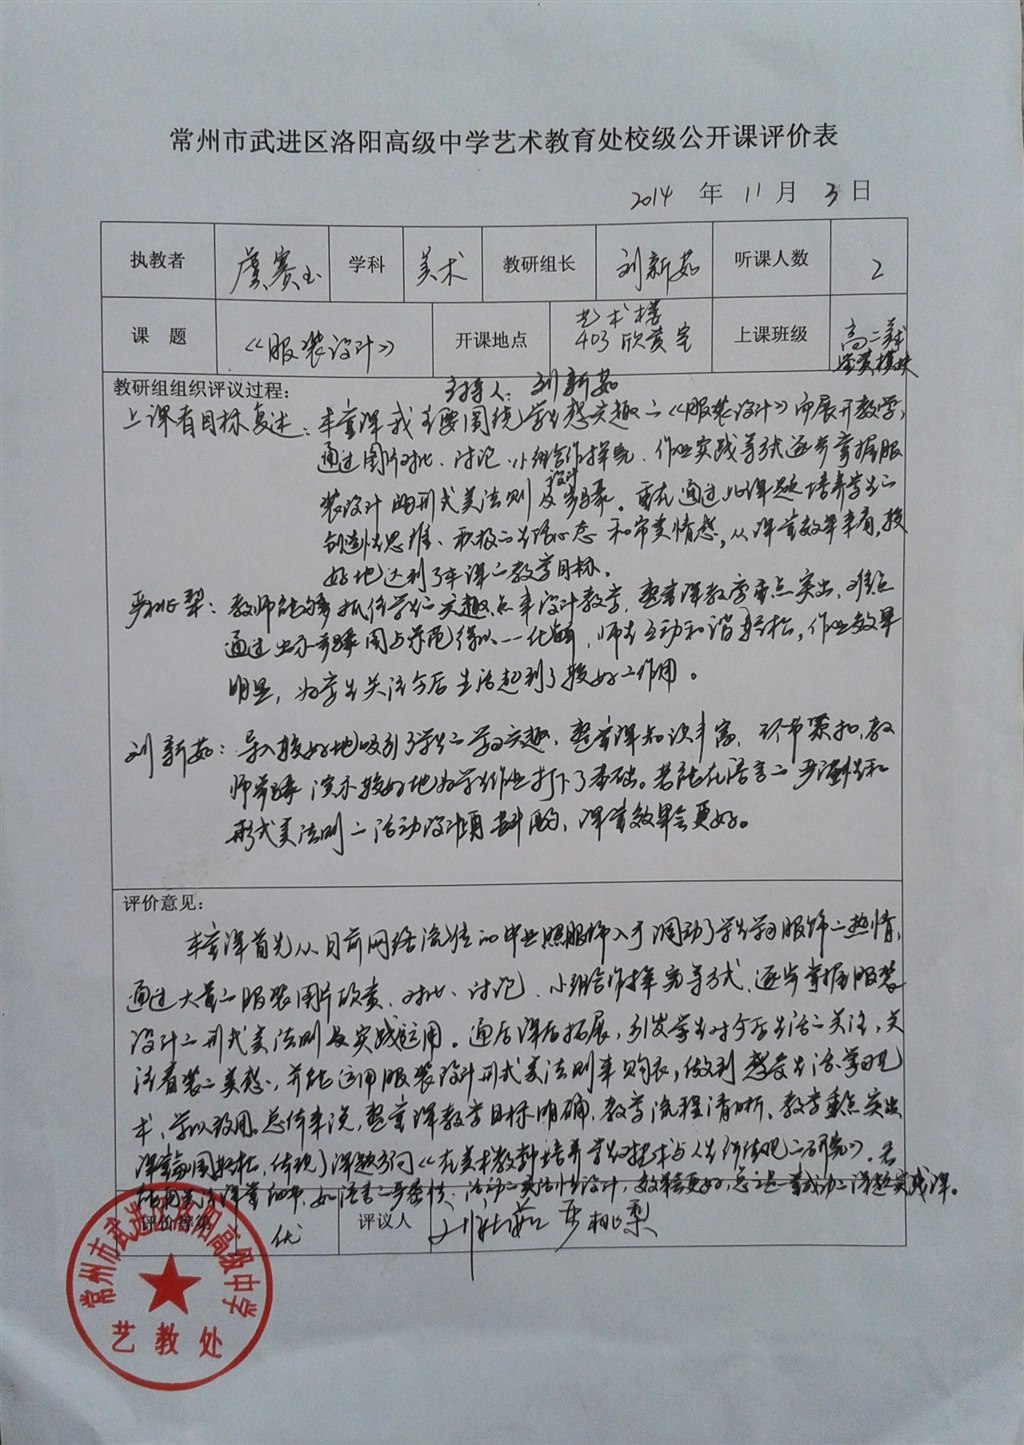 常州市武进区洛阳高级中学艺术教育处校级公开课评价表
2014 年 11 月 3 日
执教者 虞赛玉 学科 美术 教研组长 刘新茹 听课人数 2
课 题 《服装设计》 开课地点 艺术楼403欣赏室 上课班级 高二美术
教研组组织评议过程： 主持人：刘新茹
上课者目标复述：本堂课我主要围绕学生感兴趣的《服装设计》而展开教学，
通过图片对比、讨论、小组合作探究、作业实践等形式逐步掌握服
装设计的形式美法则及设计步骤。重在通过此课题培养学生的
创造性思维、积极的生活心态和审美情感，从课堂效果来看，较
好地达到了本课的教学目标。
教师能够抓住学生兴趣点来设计教学，整堂课教学重点突出，难点
通过出示步骤图与示范得以一一化解，师生互动和谐轻松，作业效果
明显，为学生关注今后生活起到了较好的作用。
刘新茹：导入较好地吸引了学生的学习兴趣，整堂课知识丰富，环节紧扣，教
师步骤演示较好地为学生作业打下了基础。若能在语言的严谨性和
形式美法则的活动设计再斟酌，课堂效果会更好。
评价意见：
本堂课首先从目前网络流传的毕业照服饰入手调动了学生学习服饰的热情，
通过大量的服装图片欣赏、对比、讨论、小组合作探究等方式，逐步掌握服装
设计的形式美法则及实践运用。通过课后拓展，引发学生对今后生活的关注，关
注着装的美感，并能运用服装设计形式美法则来购衣，做到感受生活学习艺
术、学以致用。总体来说，整堂课教学目标明确，教学流程清晰、教学重点突出
课堂氛围轻松，体现了课题方向《在美术教学中培养学生对艺术与人生价值观的研究》。若
能再关注课堂细节，如语言的严谨性、活动的灵活性设计，效果会更好，总之是一堂成功的课题实践课。
评价等第 优 评议人
常州市武进区洛阳高级中学
艺教处